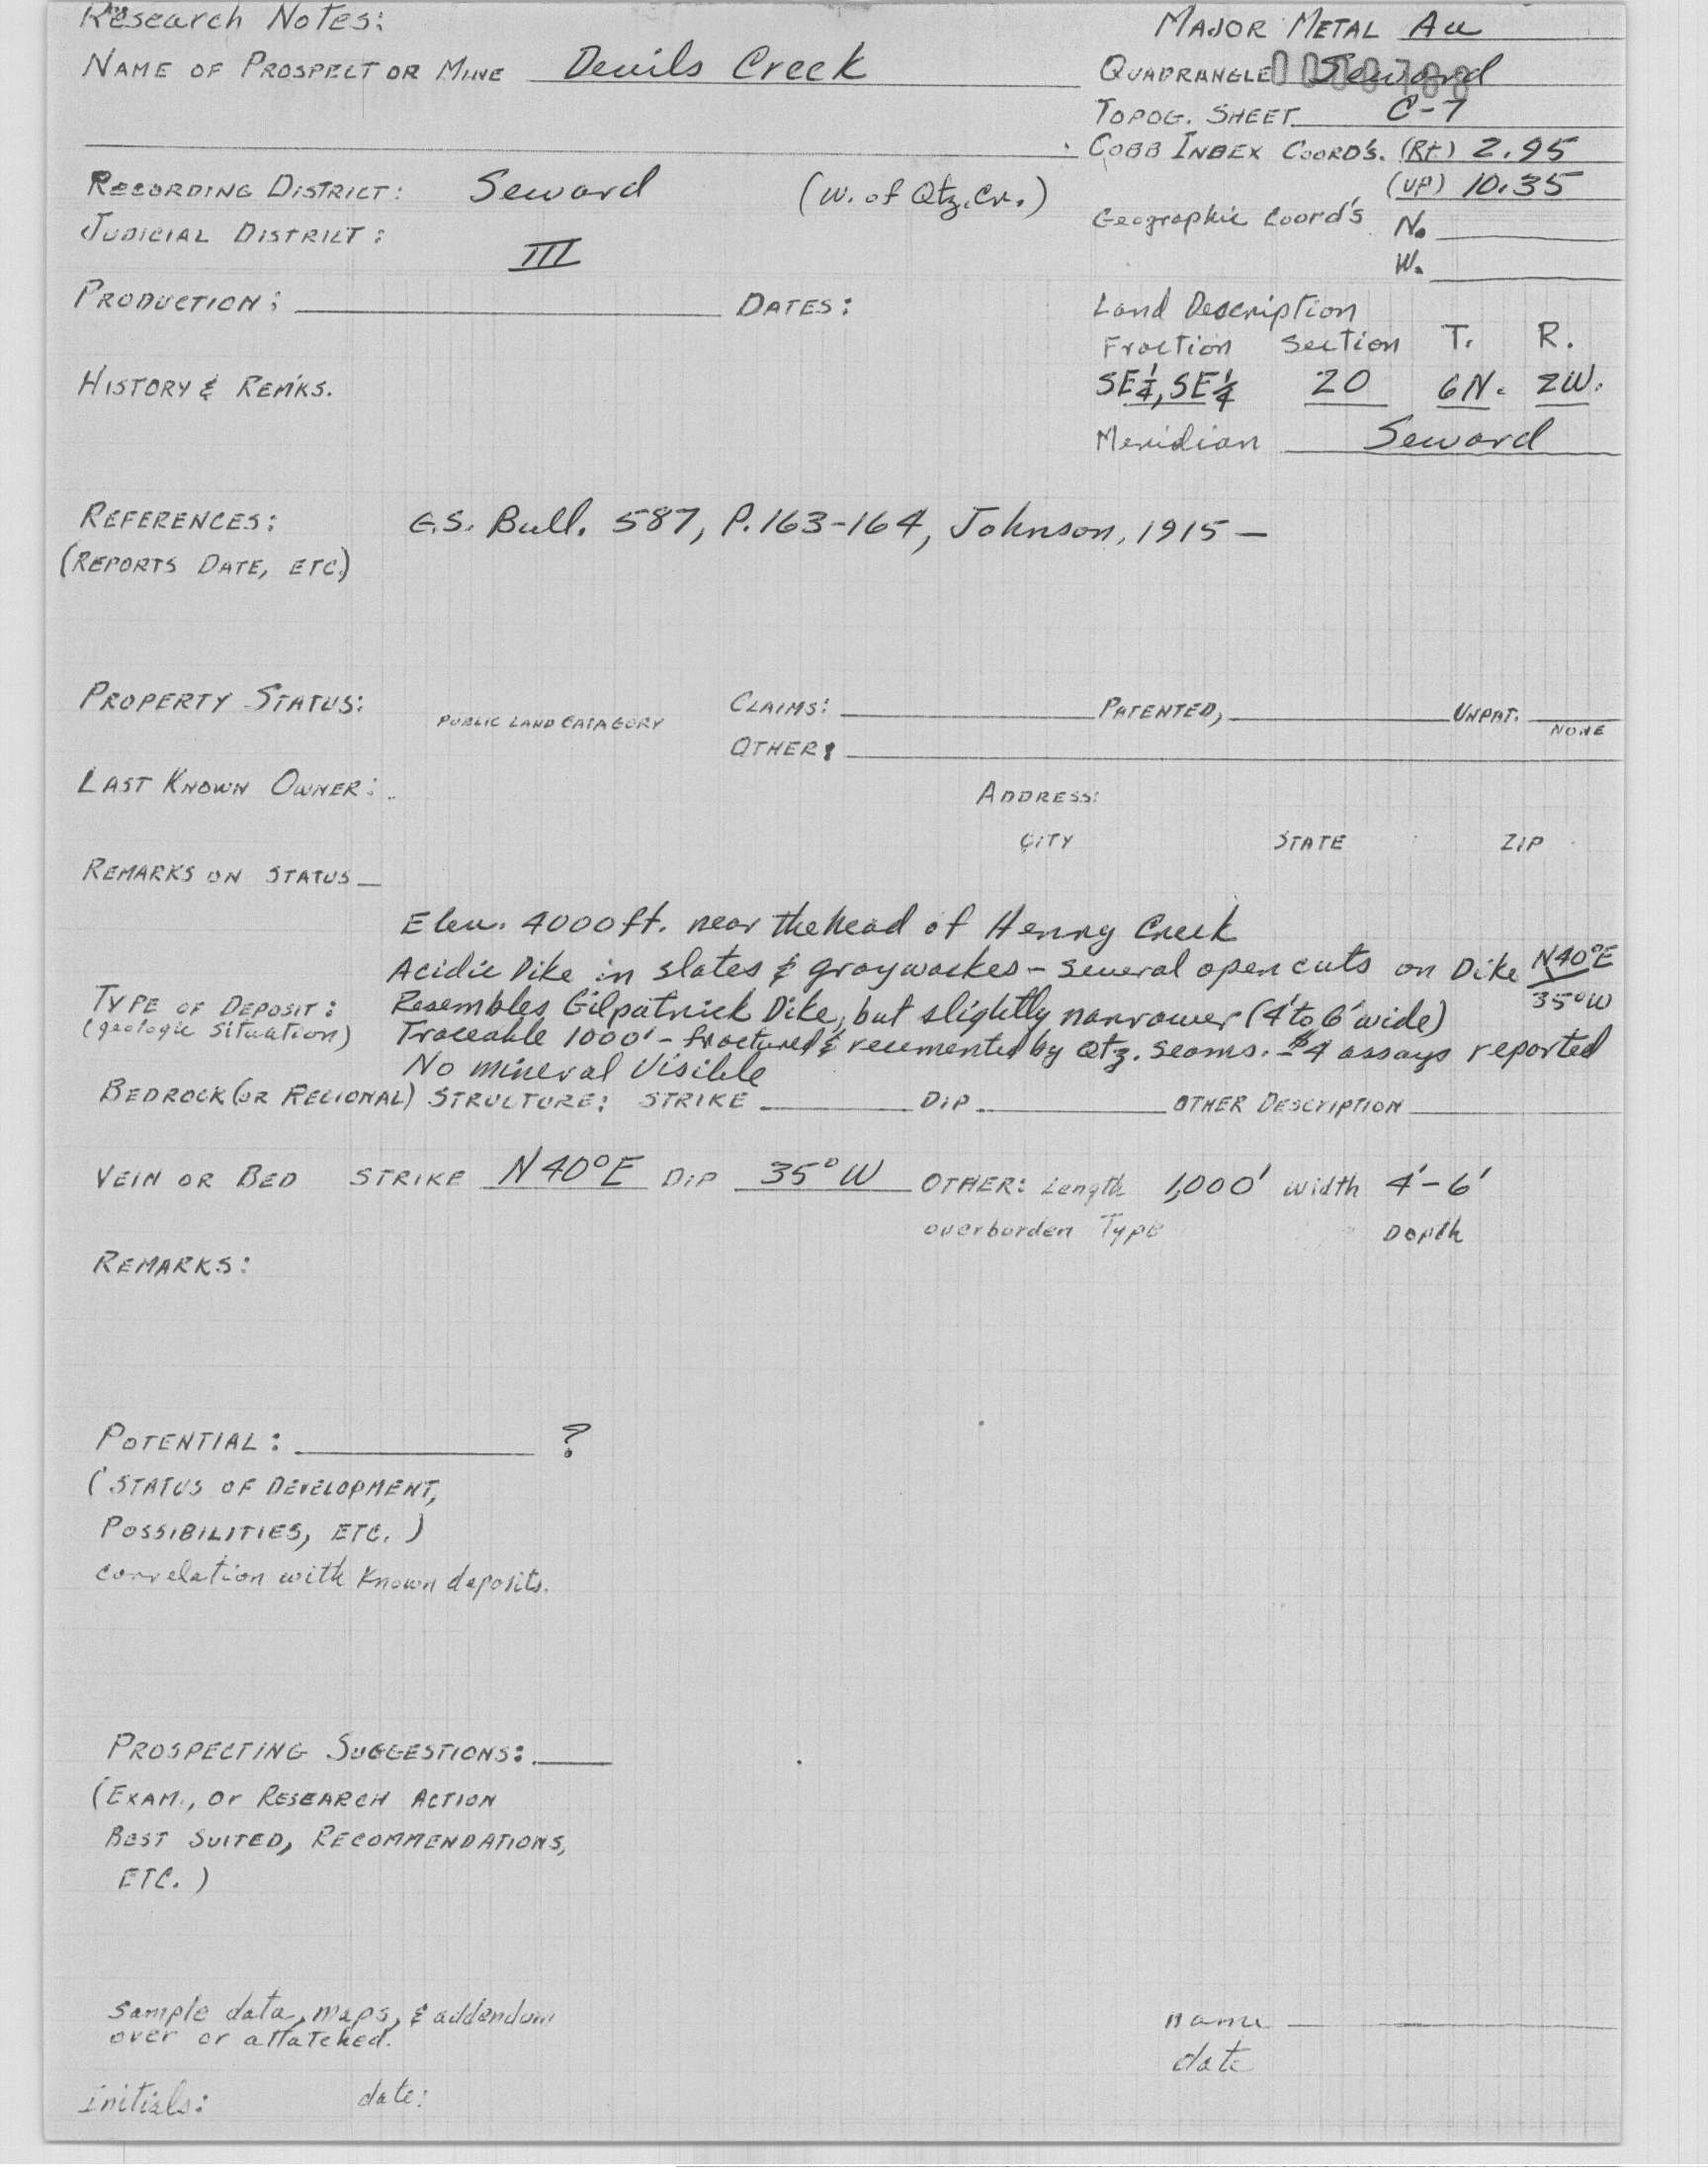 Research Notes:
MAJOR METAL Au
NAME OF PROSPECT OR MINE Devils Creek
QUADRANGLE Seward
TOPOG. SHEET C-7
COBB INDEX COORD'S. (Rt) 2.95
(UP) 10.35
RECORDING DISTRICT: Seward (W. of Qtz. Cr.)
Geographic Coord's N.
W.
JUDICIAL DISTRICT: III
PRODUCTION: DATES:
Land Description
Fraction Section T. R.
HISTORY & REM'KS.
SE¼, SE¼ 20 6N. 2W.
Meridian Seward
REFERENCES: G.S. Bull. 587, P. 163-164, Johnson, 1915 —
(REPORTS DATE, ETC.)
PROPERTY STATUS: PUBLIC LAND CATAGORY CLAIMS: PATENTED, UNPAT. NONE
OTHER:
LAST KNOWN OWNER: ADDRESS:
CITY STATE ZIP
REMARKS ON STATUS
Elev. 4000 ft. near the head of Henry Creek
Acidic Dike in slates & graywackes - several open cuts on Dike N40°E
35°W
TYPE OF DEPOSIT: Resembles Gilpatrick Dike, but slightly narrower (4' to 6' wide)
(geologic situation) Traceable 1000' - fractured & recemented by Qtz. seams. - $4 assays reported
No mineral Visible
BEDROCK (OR REGIONAL) STRUCTURE: STRIKE DIP OTHER DESCRIPTION
VEIN OR BED STRIKE N40°E DIP 35°W OTHER: Length 1,000' width 4'-6'
overborden Type Depth
REMARKS:
POTENTIAL: ?
(STATUS OF DEVELOPMENT,
POSSIBILITIES, ETC.)
correlation with known deposits.
PROSPECTING SUGGESTIONS:
(EXAM., or RESEARCH ACTION
BEST SUITED, RECOMMENDATIONS,
ETC.)
sample data, maps, & addendum
over or attatched.
name
date
initials: date: